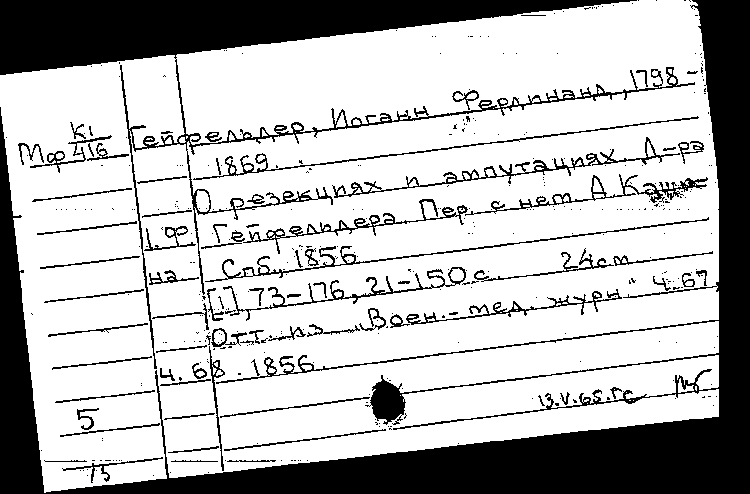 Мф К1/416 Гейфельдер, Иоганн Фердинанд, 1798–
1869.
О резекциях и ампутациях. Д-ра
1. Ф Гейфельдера. Пер. с нем. А.
на Спб., 1856
[1], 73–176, 21–150 с. 24 см
Отт. из „Воен.-мед. журн“ ч. 67,
ч. 68. 1856.
5
13.V.65.
15